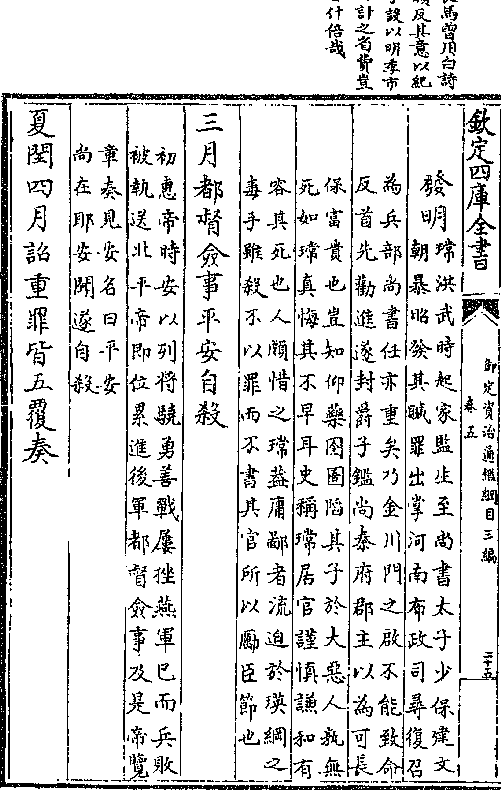 馬曾用白詩
反其意以紀
設以明季市
計之省費豈
什倍哉
欽定四庫全書
御定資治通鑑綱目三編
卷五
二十五
發明瑺洪武時起家監生至尚書太子少保建文
朝暴昭發其贓罪出掌河南布政司尋復召
為兵部尚書任亦重矣乃金川門之啟不能致命
反首先勸進遂封爵子鑑尚秦府郡主以為可長
保富貴也豈知仰藥囹圄陷其子於大惡人孰無
死如瑺真悔其不早耳史稱瑺居官謹慎謙和有
容其死也人頗惜之瑺葢庸鄙者流迫於瑛綱之
毒手雖殺不以罪而不書其官所以勵臣節也
三月都督僉事平安自殺
初惠帝時安以列將驍勇善戰屢挫燕軍已而兵敗
被執送北平帝即位累進後軍都督僉事及是帝覽
章奏見安名曰平安
尚在耶安聞遂自殺
夏閏四月詔重罪皆五覆奏